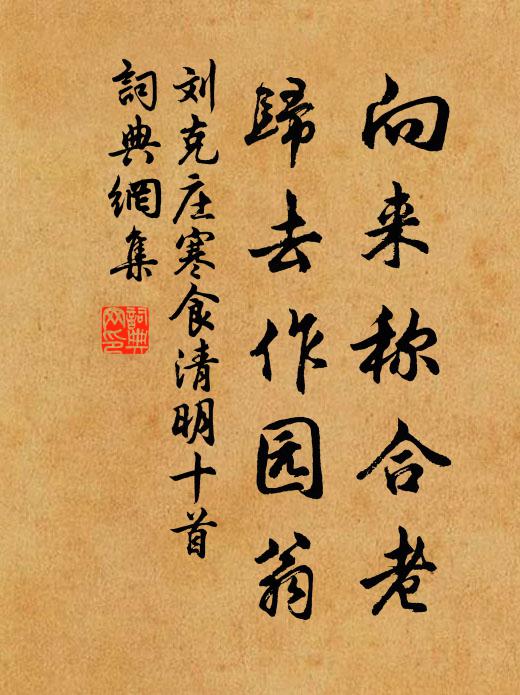 向来称合老
歸去作园翁
刘克庄寒食清明十首
詞典網集
詞典網印